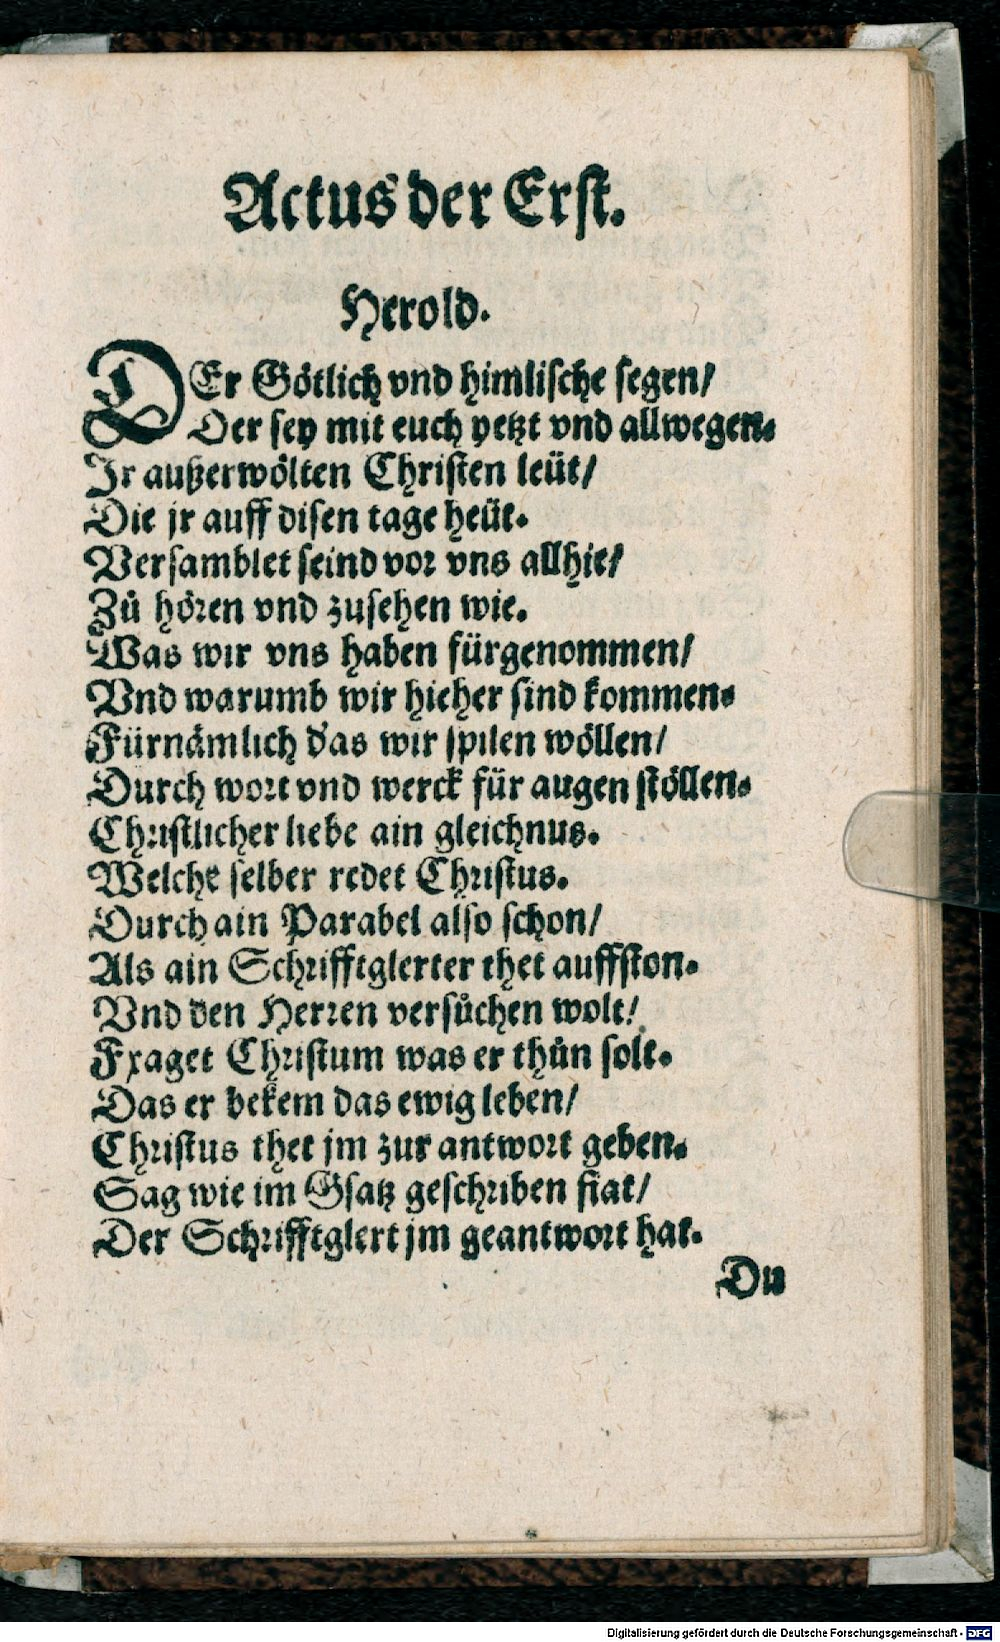 Actus der Erst.
Herold.
DEr Götlich vnd himlische segen/
Der sey mit euch yetzt vnd allwegen.
Ir außerwölten Christen leüt/
Die jr auff disen tage heüt.
Versamblet seind vor vns allhie/
Zů hören vnd zusehen wie.
Was wir vns haben fürgenommen/
Vnd warumb wir hieher sind kommen.
Fürnämlich das wir spilen wöllen/
Durch wort vnd werck für augen stöllen.
Christlicher liebe ain gleichnus.
Welche selber redet Christus.
Durch ain Parabel also schon/
Als ain Schrifftglerter thet auffston.
Vnd den Herren versůchen wolt/
Fraget Christum was er thůn solt.
Das er bekem das ewig leben/
Christus thet jm zur antwort geben.
Sag wie im Gsatz geschriben stat/
Der Schrifftglert jm geantwort hat.
Du
Digitalisierung gefördert durch die Deutsche Forschungsgemeinschaft - DFG